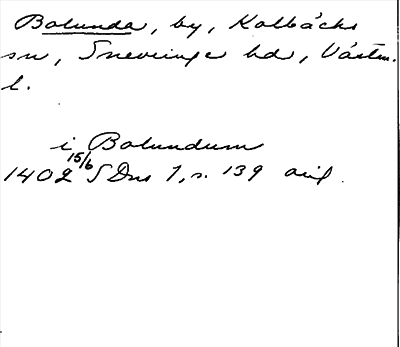 Bolunda, by, Kolbäcks
sn, Snevringe hd, Västm.
l.
i Bolundum
1402 15/6 SDns 1, s. 139 orig.